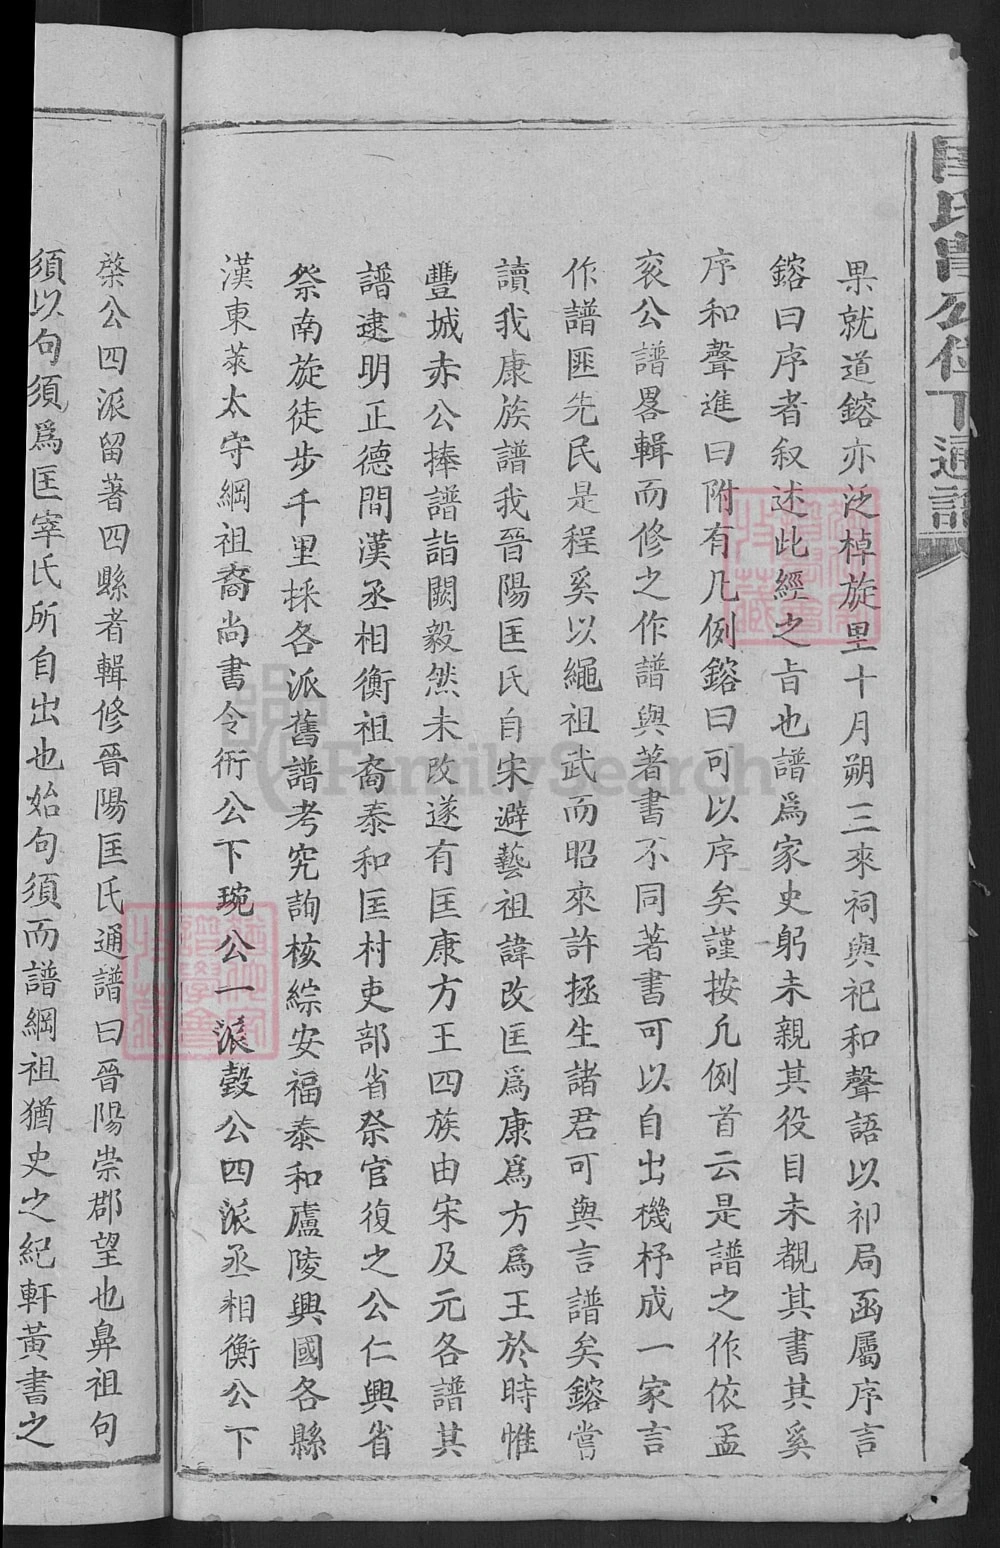 果就道鎔亦泛棹旋里十月朔三來祠與祀和聲語以祁局函屬序言
鎔曰序者叙述此經之旨也譜爲家史躬未親其役目未覩其書其奚
序和聲進曰附有凡例鎔曰可以序矣謹按凡例首云是譜之作依孟
衮公譜畧輯而修之作譜與著書不同著書可以自出機杼成一家言
作譜匪先民是程奚以繩祖武而昭來許拯生諸君可與言譜矣鎔嘗
讀我康族譜我晉陽匡氏自宋避藝祖諱改匡爲康爲方爲王於時惟
豐城赤公捧譜詣闕毅然未改遂有匡康方王四族由宋及元各譜其
譜逮明正德間漢丞相衡祖裔泰和匡村吏部省祭官復之公仁興省
祭南旋徒步千里採各派舊譜考究詢核綜安福泰和廬陵興國各縣
漢東萊太守綱祖裔尚書令衎公下琬公一派毂公四派丞相衡公下
棨公四派留著四縣者輯修晉陽匡氏通譜曰晉陽崇郡望也鼻祖句
須以句須爲匡宰氏所自出也始句須而譜綱祖猶史之紀軒黃書之
公位下通譜
FamilySearch